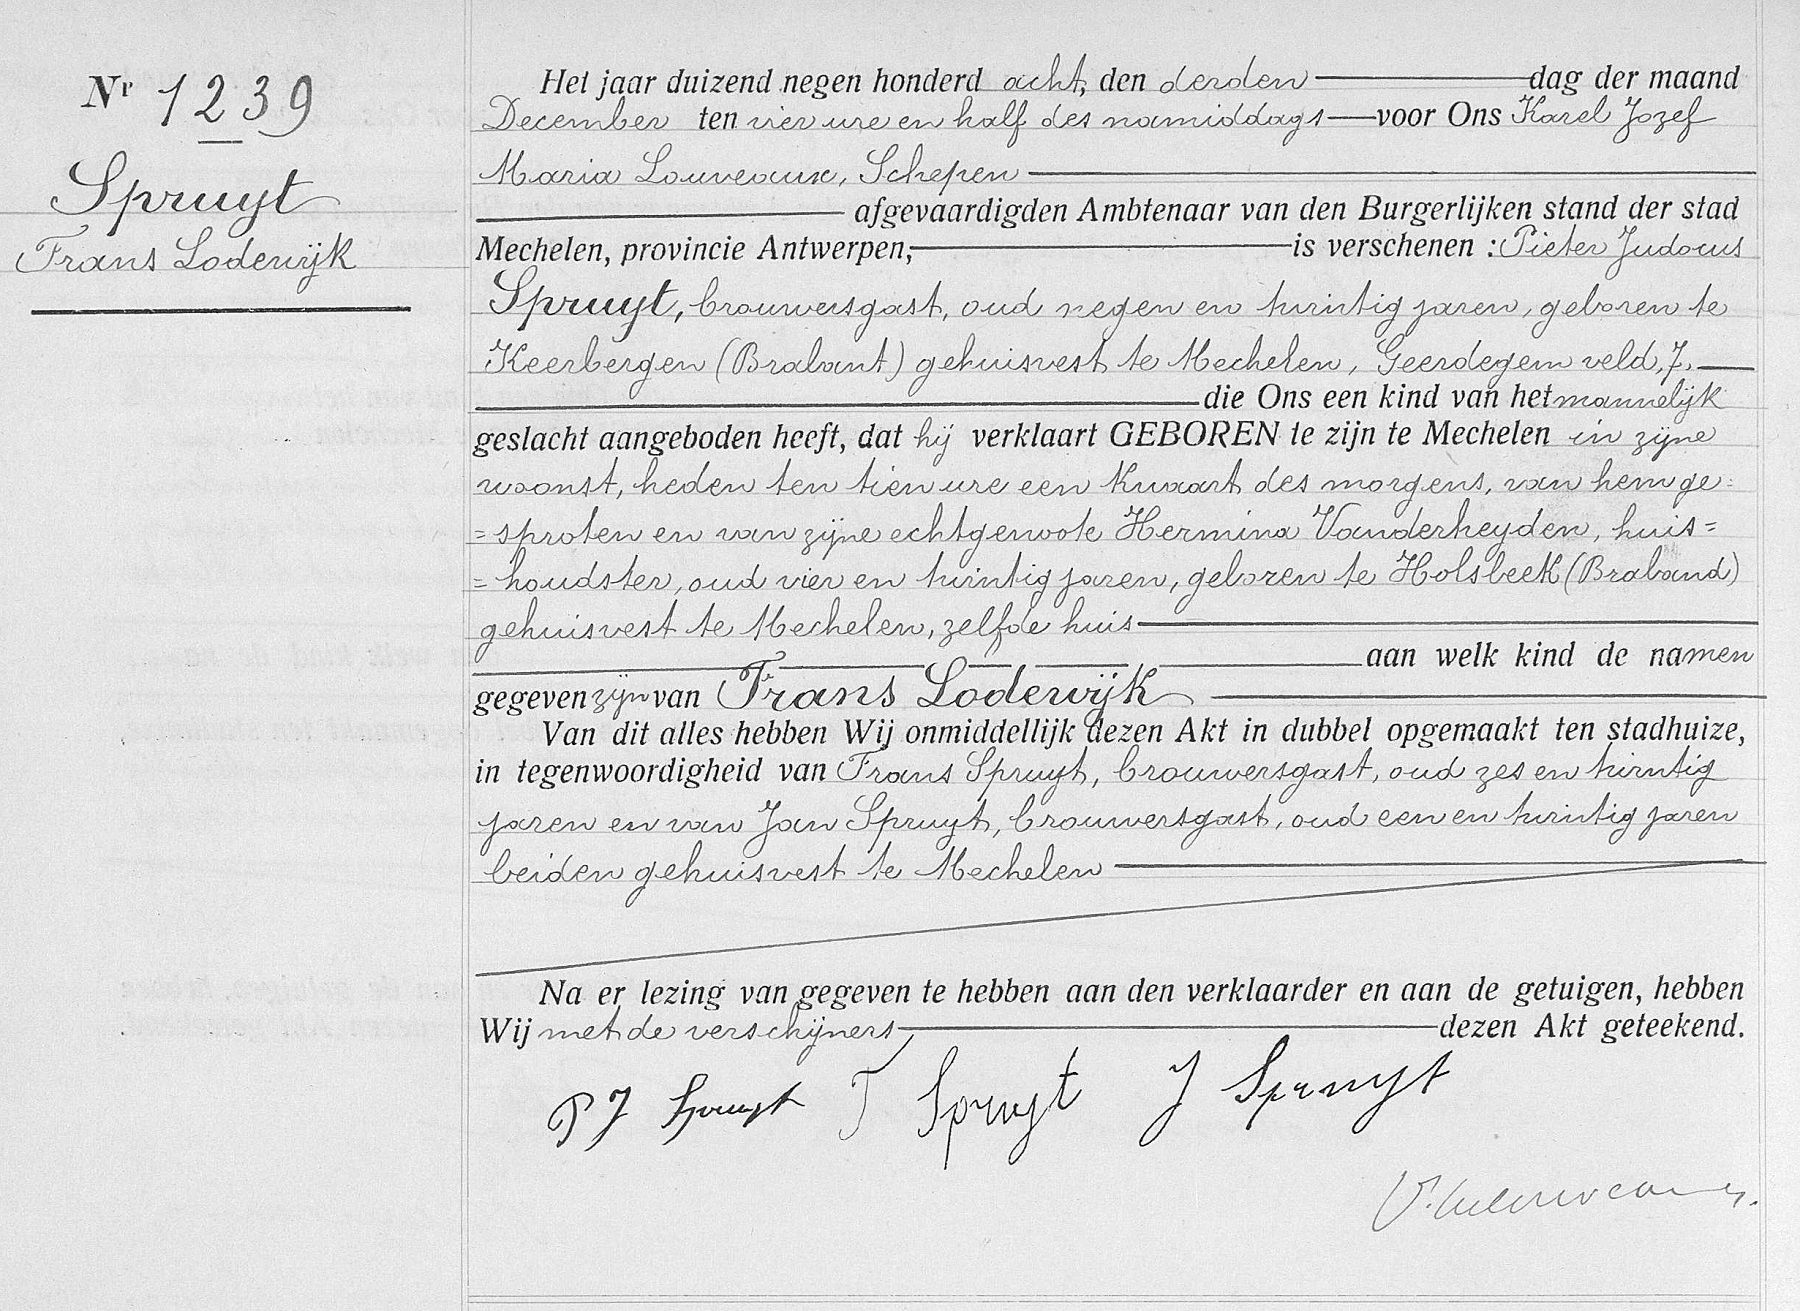 Nr 1239
Spruyt
Frans Lodewijk
Het jaar duizend negen honderd acht, den derden dag der maand
December ten vier ure en half des namiddags voor Ons Karel Jozef
Maria Louveaux, Schepen
afgevaardigden Ambtenaar van den Burgerlijken stand der stad
Mechelen, provincie Antwerpen, is verschenen : Pieter Judocus
Spruyt, brouwersgast, oud negen en twintig jaren, geboren te
Keerbergen (Brabant) gehuisvest te Mechelen, Geerdegem veld, 7.
die Ons een kind van het mannelijk
geslacht aangeboden heeft, dat hij verklaart GEBOREN te zijn te Mechelen in zijne
woonst, heden ten tien ure een kwaart des morgens, van hem ge=
=sproten en van zijne echtgenoote Hermina Vanderheyden, huis=
=houdster, oud vier en twintig jaren, geboren te Holsbeek (Braband)
gehuisvest te Mechelen, zelfde huis
aan welk kind de namen
gegeven zijn van Frans Lodewijk
Van dit alles hebben Wij onmiddellijk dezen Akt in dubbel opgemaakt ten stadhuize,
in tegenwoordigheid van Frans Spruyt, brouwersgast, oud zes en twintig
jaren en van Jan Spruyt, brouwersgast, oud een en twintig jaren
beiden gehuisvest te Mechelen
Na er lezing van gegeven te hebben aan den verklaarder en aan de getuigen, hebben
Wij met de verschijners, dezen Akt geteekend.
P J Spruyt F Spruyt J Spruyt